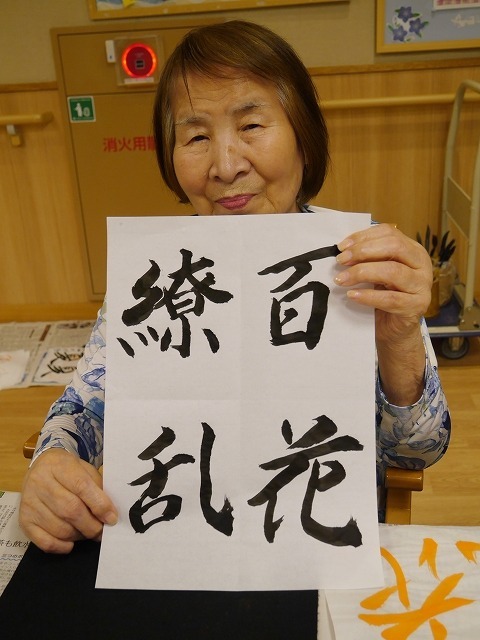 百花
繚乱
消火用